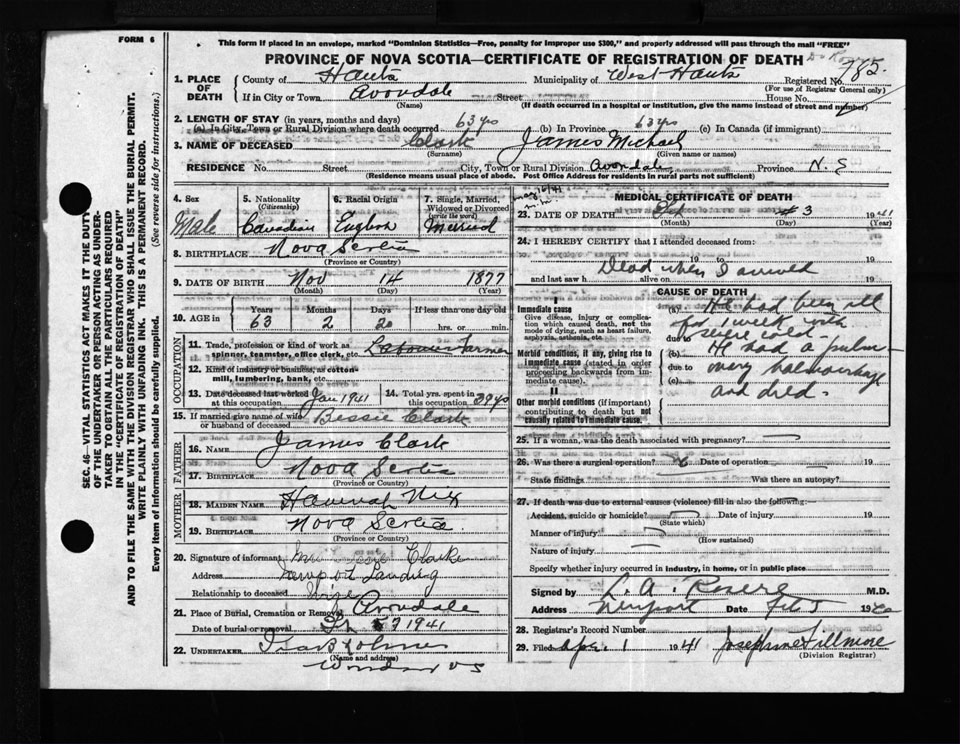 FORM 6
This form if placed in an envelope, marked "Dominion Statistics—Free, penalty for improper use $300," and properly addressed will pass through the mail "FREE"
PROVINCE OF NOVA SCOTIA—CERTIFICATE OF REGISTRATION OF DEATH
1. PLACE OF DEATH County of Hants Municipality of West Hants Registered No. 785
(For use of Registrar General only)
If in City or Town Avondale Street House No.
(Name) (If death occurred in a hospital or institution, give the name instead of street and number)
2. LENGTH OF STAY (in years, months and days)
(a) In City, Town or Rural Division where death occurred 63 yrs (b) In Province 63 yrs (c) In Canada (if immigrant)
3. NAME OF DECEASED Clark James Michael
(Surname) (Given name or names)
RESIDENCE No. Street City, Town or Rural Division Avondale Province N.S
(Residence means usual place of abode. Post Office Address for residents in rural parts not sufficient)
4. Sex Male
5. Nationality (Citizenship) Canadian
6. Racial Origin English
7. Single, Married, Widowed or Divorced (write the word) Married
8. BIRTHPLACE Nova Scotia
(Province or Country)
9. DATE OF BIRTH Nov 14 1877
(Month) (Day) (Year)
10. AGE in Years Months Days If less than one day old
63 2 20 hrs. or min.
OCCUPATION
11. Trade, profession or kind of work as spinner, teamster, office clerk, etc. Labourer Farmer
12. Kind of industry or business, as cotton-mill, lumbering, bank, etc.
13. Date deceased last worked at this occupation Jan 1941
14. Total yrs. spent in this occupation 39 yrs
15. If married give name of wife or husband of deceased Bessie Clark
FATHER
16. NAME James Clark
17. BIRTHPLACE Nova Scotia
(Province or Country)
MOTHER
18. MAIDEN NAME Hannah Nix
19. BIRTHPLACE Nova Scotia
(Province or Country)
20. Signature of informant Clarke
Address Newport Landing
Relationship to deceased Wife
21. Place of Burial, Cremation or Removal Avondale
Date of burial or removal 7 1941
22. UNDERTAKER
(Name and address)
Windsor NS
MEDICAL CERTIFICATE OF DEATH
23. DATE OF DEATH Feb 3 1941
(Month) (Day) (Year)
24. I HEREBY CERTIFY that I attended deceased from:
19 to 19
Dead when I arrived
and last saw h alive on 19
CAUSE OF DEATH
I
Immediate cause
Give disease, injury or complication which caused death, not the mode of dying, such as heart failure, asphyxia, asthenia, etc.
Morbid conditions, if any, giving rise to immediate cause (stated in order proceeding backwards from immediate cause).
II
Other morbid conditions (if important) contributing to death but not causally related to immediate cause.
(a) He had been ill
for 1 week with
due to severe cold.
(b) He had a pulmo-
due to nary haemorrhage
(c) and died.
25. If a woman, was the death associated with pregnancy?
26. Was there a surgical operation? Date of operation 19
State findings Was there an autopsy?
27. If death was due to external causes (violence) fill in also the following:—
Accident, suicide or homicide? Date of injury 19
(State which)
Manner of injury
(How sustained)
Nature of injury
Specify whether injury occurred in industry, in home, or in public place
Signed by M.D.
Address Newport Date Feb 5 19
28. Registrar's Record Number
29. Filed Apr. 1 1941 Josephine Fillmore
(Division Registrar)
SEC. 46—VITAL STATISTICS ACT MAKES IT THE DUTY
OF THE UNDERTAKER OR PERSON ACTING AS UNDER-
TAKER TO OBTAIN ALL THE PARTICULARS REQUIRED
IN THE "CERTIFICATE OF REGISTRATION OF DEATH"
AND TO FILE THE SAME WITH THE DIVISION REGISTRAR WHO SHALL ISSUE THE BURIAL PERMIT.
WRITE PLAINLY WITH UNFADING INK. THIS IS A PERMANENT RECORD.
Every item of information should be carefully supplied. (See reverse side for instructions.)